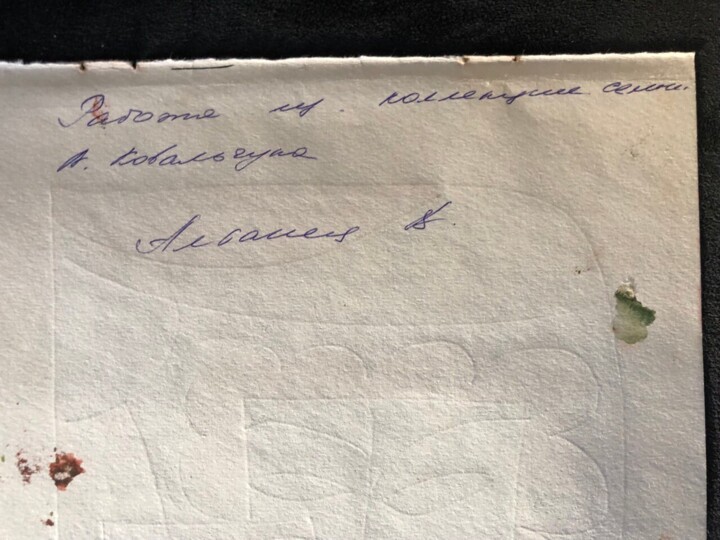 Работа из коллекции семьи
А. Ковальчука
Албанец В.